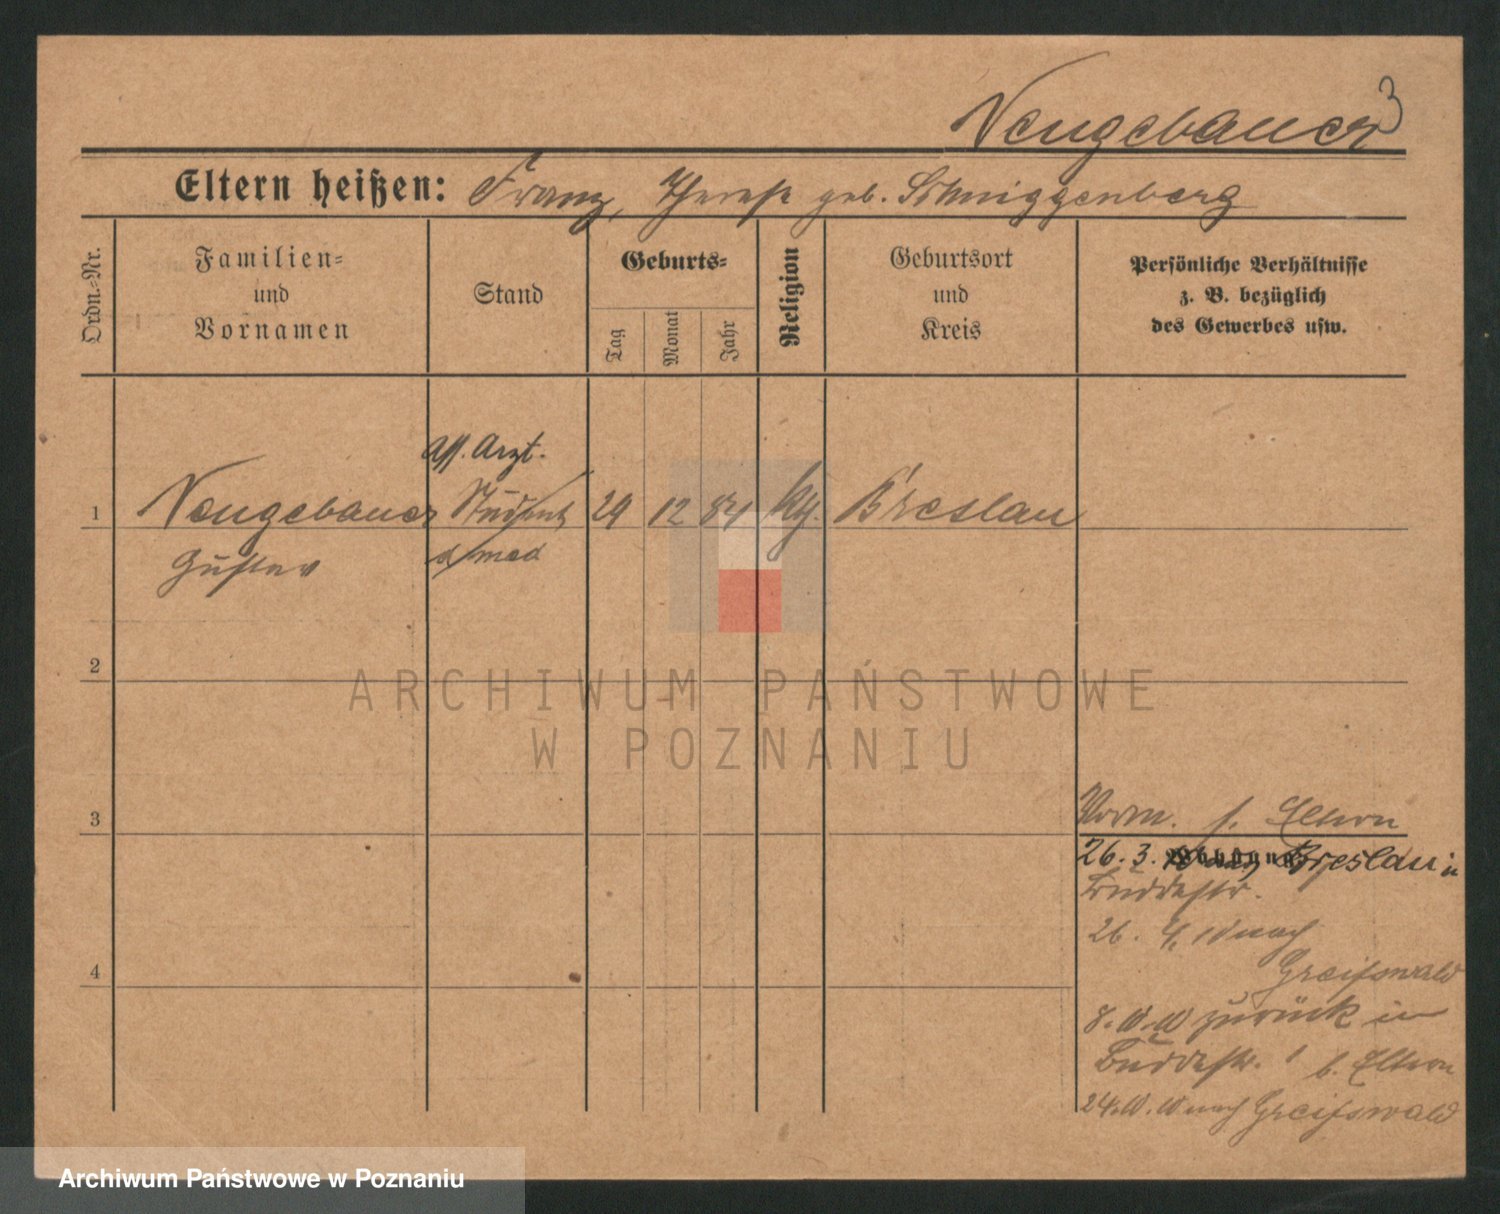 Neugebauer 3
Eltern heißen: Franz, Therese geb. Schniggenberg
Ordn.-Nr.
Familien-
und
Vornamen
Stand
Geburts-
Tag
Monat
Jahr
Religion
Geburtsort
und
Kreis
Persönliche Verhältnisse
z. B. bezüglich
des Gewerbes usw.
Ass. Arzt.
1 Neugebauer Student 29 12 84 ktg. Breslau
Gustav d. med
2
ARCHIWUM PAŃSTWOWE
W POZNANIU
3
Eltern
Wohnung
26. 3. Breslau in
Buddestr.
26. 4. 10 nach
Greifswald
8. 10. 10 zurück in
Buddestr. 1 b. Eltern
4
24. 10. 10 nach Greifswald
Archiwum Państwowe w Poznaniu